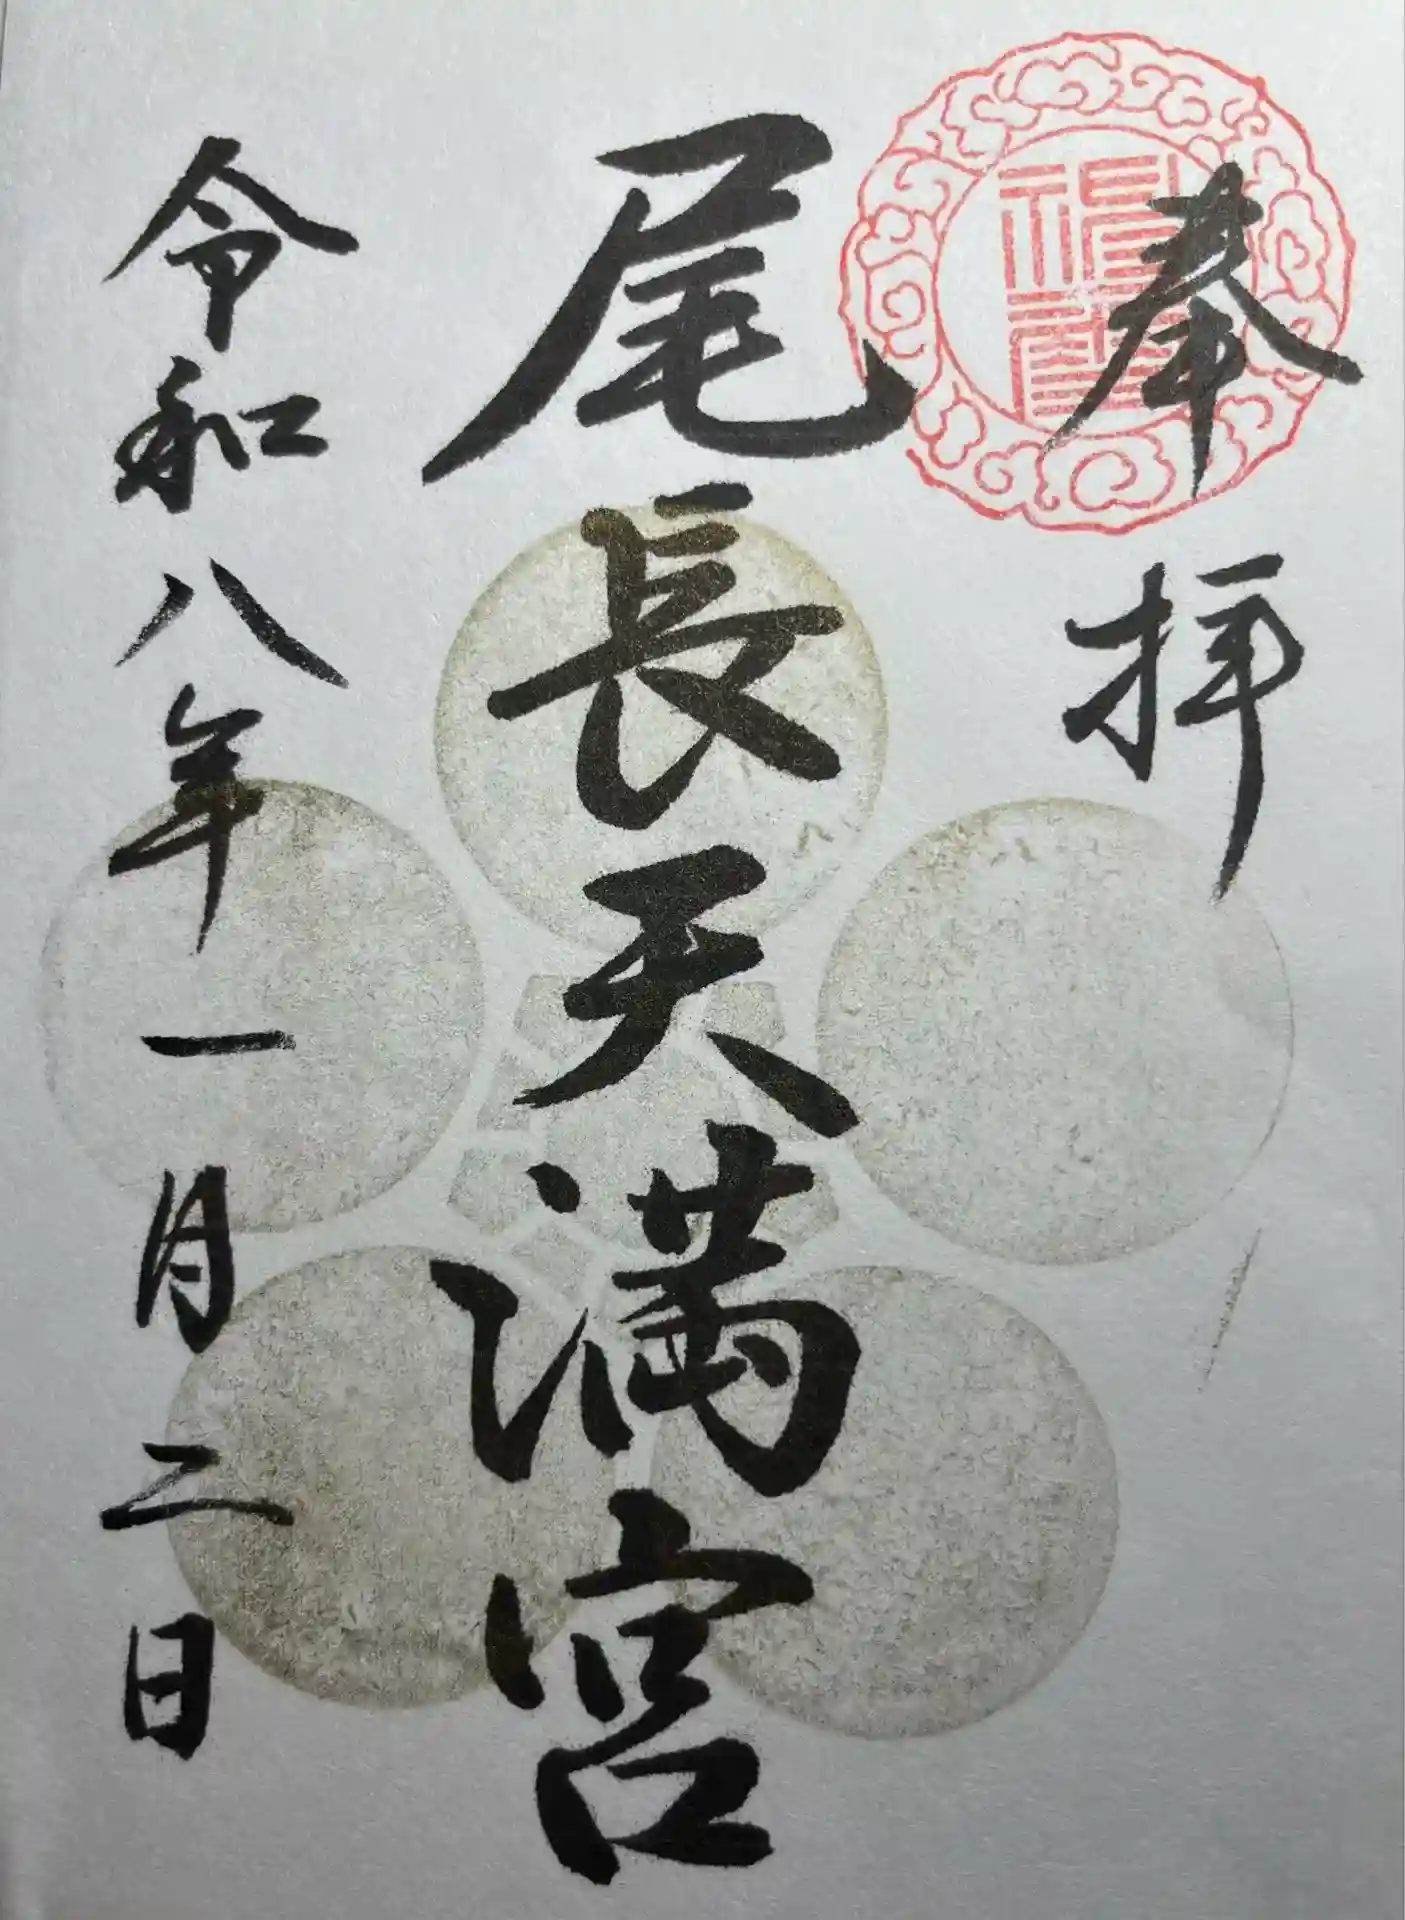 奉拝
尾長天満宮
令和八年一月二日